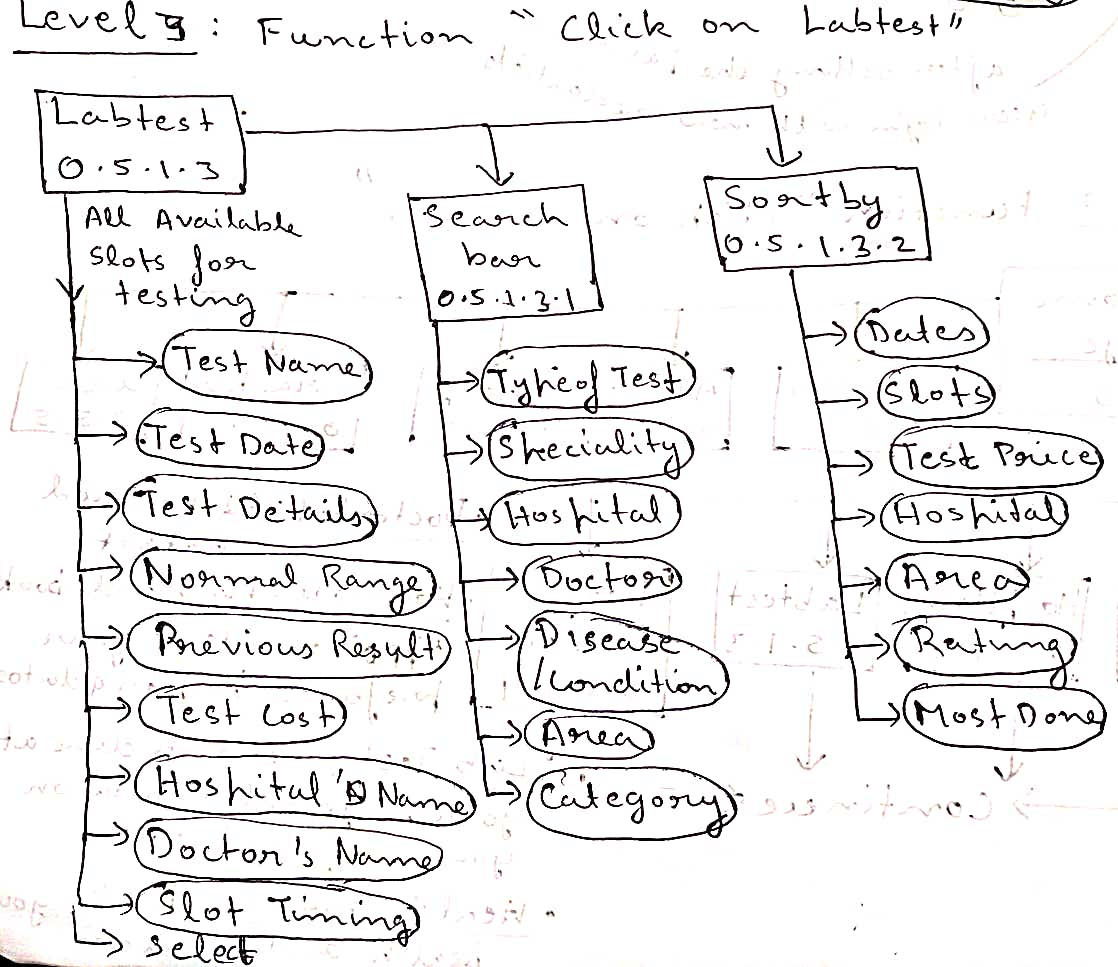 Level 5 : Function "Click on Labtest"
Labtest
0.5.1.3
All Available
Slots for
testing
Test Name
Test Date
Test Details
Normal Range
Previous Result
Test Cost
Hospital's Name
Doctor's Name
Slot Timing
select
Search
bar
0.5.1.3.1
Type of Test
Speciality
Hospital
Doctor
Disease
/Condition
Area
Category
Sort by
0.5.1.3.2
Dates
Slots
Test Price
Hospital
Area
Rating
Most Done